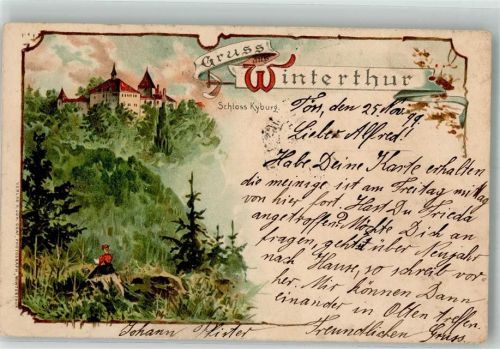 Gruss aus
Winterthur
Schloss Kyburg.
Töss, den 25 Nov. 99
Lieber Alfred!
Habe Deine Karte erhalten
die meinige ist am Freitag mittag
von hier fort. Hast Du Frieda
angetroffen? Möchte Dich an-
fragen, gehst über Neujahr
nach Hause, so schreib vor-
her. Wir können Dann
einander in Olten treffen.
Freundlichen Gruss.
Johann Pfister